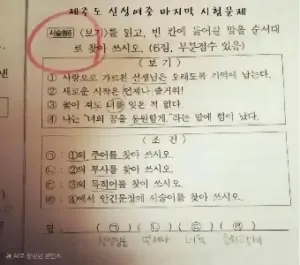 제주도 신성여중 마지막 시험문제
서술형6 <보기>를 읽고, 빈 칸에 들어갈 말을 순서대
로 찾아 쓰시오. (6점, 부분점수 있음)
< 보 기 >
① 사랑으로 가르친 선생님은 오래도록 기억에 남는다.
② 새로운 시작은 언제나 즐거워!
③ 꽃이 져도 너를 잊은 적 없다.
④ 나는 "너의 꿈을 응원할게."라는 말에 힘이 났다.
< 조 건 >
㉠ : ①의 주어를 찾아 쓰시오.
㉡ : ②의 부사를 찾아 쓰시오.
㉢ : ③의 목적어를 찾아 쓰시오.
㉣ : ④에서 안긴문장에 서술어를 찾아 쓰시오.
답 : ( ㉠ ) ( ㉡ ) ( ㉢ ) ( ㉣ )
선생님은 언제나 너를 응원할게